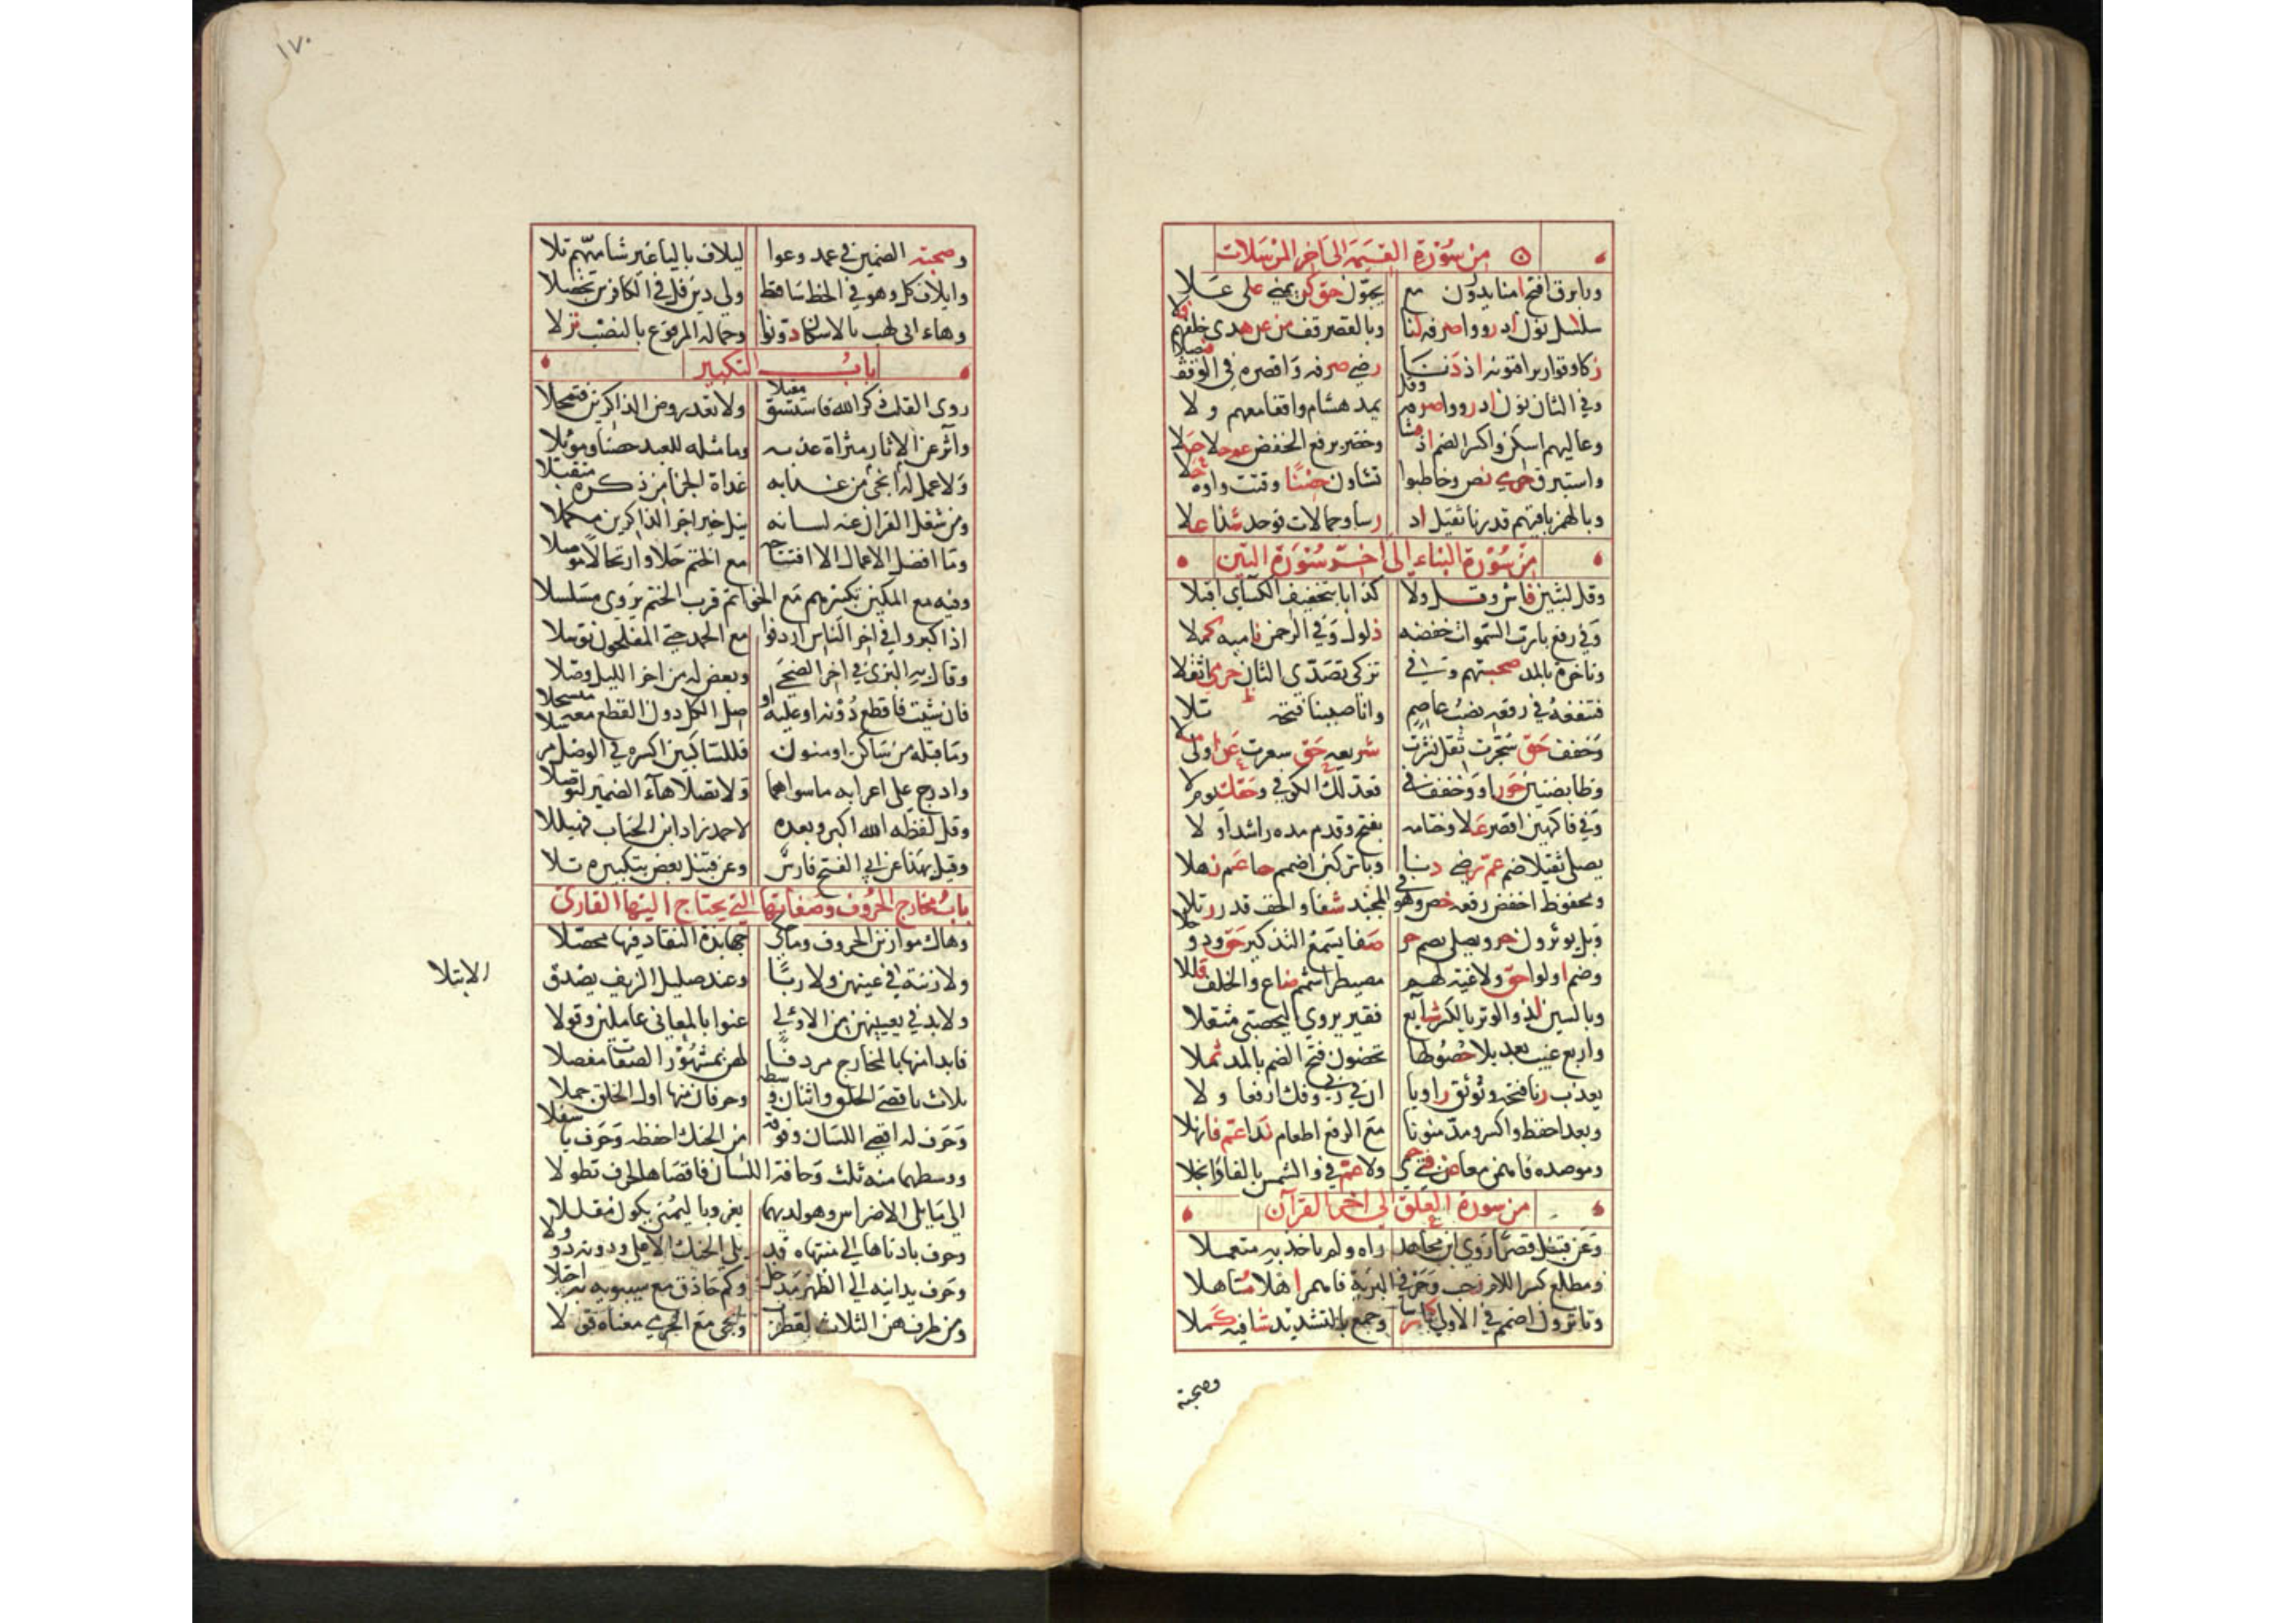 من سورة القيمة الى آخر المرسلات
وبا برق افتح امنا يذرون مع يحبون حق كف يمنى على علا
سلاسل نون اد رووا صرفه لنا وبالقصر قف من عن هدى خلفهم فلا
زكا وقواريرا فنونه اذ دنا رضى صرفه واقصره في الوقف فيصلا
وفي الثان نون اد رووا صرفه وقل يمد هشام واقفا معهم ولا
وعاليهم اسكن واكسر الضم اذ فشا وخضر برفع الخفض عم حلا علا
واستبرق حرمي نصر وخاطبوا تشاؤن حصنا وقتت واوه حلا
وبالهمز باقيهم قدرنا ثقيلا اذ رسا وجمالات فوحد شذا علا
من سورة النباء إلى اخر سورة التين
وقل لبثين فاش وقل ولا كذابا بتخفيف الكسائي اقبلا
وفي رفع با رب السموات خفضه ذلول وفي الرحمن ناميه كملا
وناخرة بالمد صحبتهم وفي تزكى تصدى الثان حرمي اثقلا
فتنفعه في رفعه نصب عاصم وانا صببنا فتحه ثبته تلا
وخفف حق سجرت ثقل نشرت شريعة حق سعرت عن اولى ملا
وظا بضنين حق راو وخفف في فعدلك الكوفي وحقك يوم لا
وفي فاكهين اقصر علا وختامه بفتح وقدم مده راشدا ولا
يصلى ثقيلا ضم عم رضى دنا وبا تركبن اضمم حيا عم نهلا
ومحفوظ اخفض رفعه خص وهو في المجيد شفا والخف قدر رتلا
وبل يوثرون حز ويصلى يضم حز صفا يسمع التذكير حق وذو جلا
وضم اولوا حق ولاغية لهم مصيطر اشمم ضاع والخلف قللا
وبالسين لذ والوتر بالكسر شايع فقدر يروي اليحصبي مثقلا
واربع غيب بعد بل لا حصولها تحضون فتح الضم بالمد ثملا
يعذب فافتحه ويوثق راويا وفك ارفعا ولا
وبعد اخفض واكسر ومد منونا مع الرفع اطعام ندا عم فانهلا
وموصدة فاهمز معا عن فتى حمى ولا عم في والشمس بالفاء وانجلا
من سورة العلق الى اخر القرآن
وعن قنبل قصرا روى ابن مجاهد راه ولم ياخذ به متعملا
ومطلع كسر اللام رحب وحرفي البرية فاهمز اهلا متاهلا
وتا ترون اضمم في الاولى كما رسا وجمع بالتشديد شافيه كملا
وصحبة
١٧٠
وصحبة الضمين في عمد وعوا ليلاف باليا غير شاميهم تلا
وايلاف كل وهو في الخط ساقط ولي دين قل في الكافرين تحصلا
وهاء ابي لهب بالاسكان دونوا وحمالة المرفوع بالنصب نزلا
باب التكبير
روى القلب ذكر الله فاستسق مقبلا ولا تعد روض الذاكرين فتمحلا
واثر عن الاثار مثراة عذبه وما مثله للعبد حصنا وموئلا
ولا عمل انجى له من عذابه غداة الجزا من ذكره متقبلا
ومن شغل القرآن عنه لسانه ينل خير اجر الذاكرين مكملا
وما افضل الاعمال الا افتتاحه مع الختم حلا وارتحالا موصلا
وفيه مع المكين تكبيرهم مع الخواتم قرب الختم يروى مسلسلا
اذا كبروا في اخر الناس اردفوا مع الحمد حتى المفلحون توسلا
وقال به البزي في اخر الضحى وبعض له من اخر الليل وصلا
فان شئت فاقطع دونه او عليه او صل الكل دون القطع معه مبسملا
وما قبله من ساكن او منون فللساكنين اكسره في الوصل مرسلا
وادرج على اعرابه ما سواهما ولا تصلا هاء الضمير لتوصلا
وقل لفظه الله اكبر وبعده لاحمد زاد ابن الحباب فهيللا
وقيل بهذا عن ابي الفتح فارس وعن قنبل بعض بتكبيره تلا
باب مخارج الحروف وصفاتها التي يحتاج اليها القارئ
وهاك موازين الحروف وما حكى جهابذة النقاد فيها محصلا
ولا ريبة في عينهن ولا ربا وعند صليل الزيف يصدق
الابتلا
ولا بد في تعيينهن من الاولى عنوا بالمعاني عاملين وقولا
فابدا منها بالمخارج مردفا لهن بمشهور الصفات مفصلا
ثلاث باقصى الحلق واثنان وسطه وحرفان منها اول الحلق جملا
وحرف له اقصى اللسان وفوقه من الحنك احفظه وحرف باسفلا
ووسطهما منه ثلث وحافة اللسان فاقصاها لحرف تطولا
الى ما يلي الاضراس وهو لديهما يعز وباليمنى يكون مقللا
وحرف بادناها الى منتهاه قد يلي الحنك الاعلى ودونه ذو ولا
وحرف يدانيه الى الظهر مدخل وكم حاذق مع سيبويه به اجتلا
ومن طرف هن الثلاث لقطرب ويحيى مع الجرمي معناه قولا